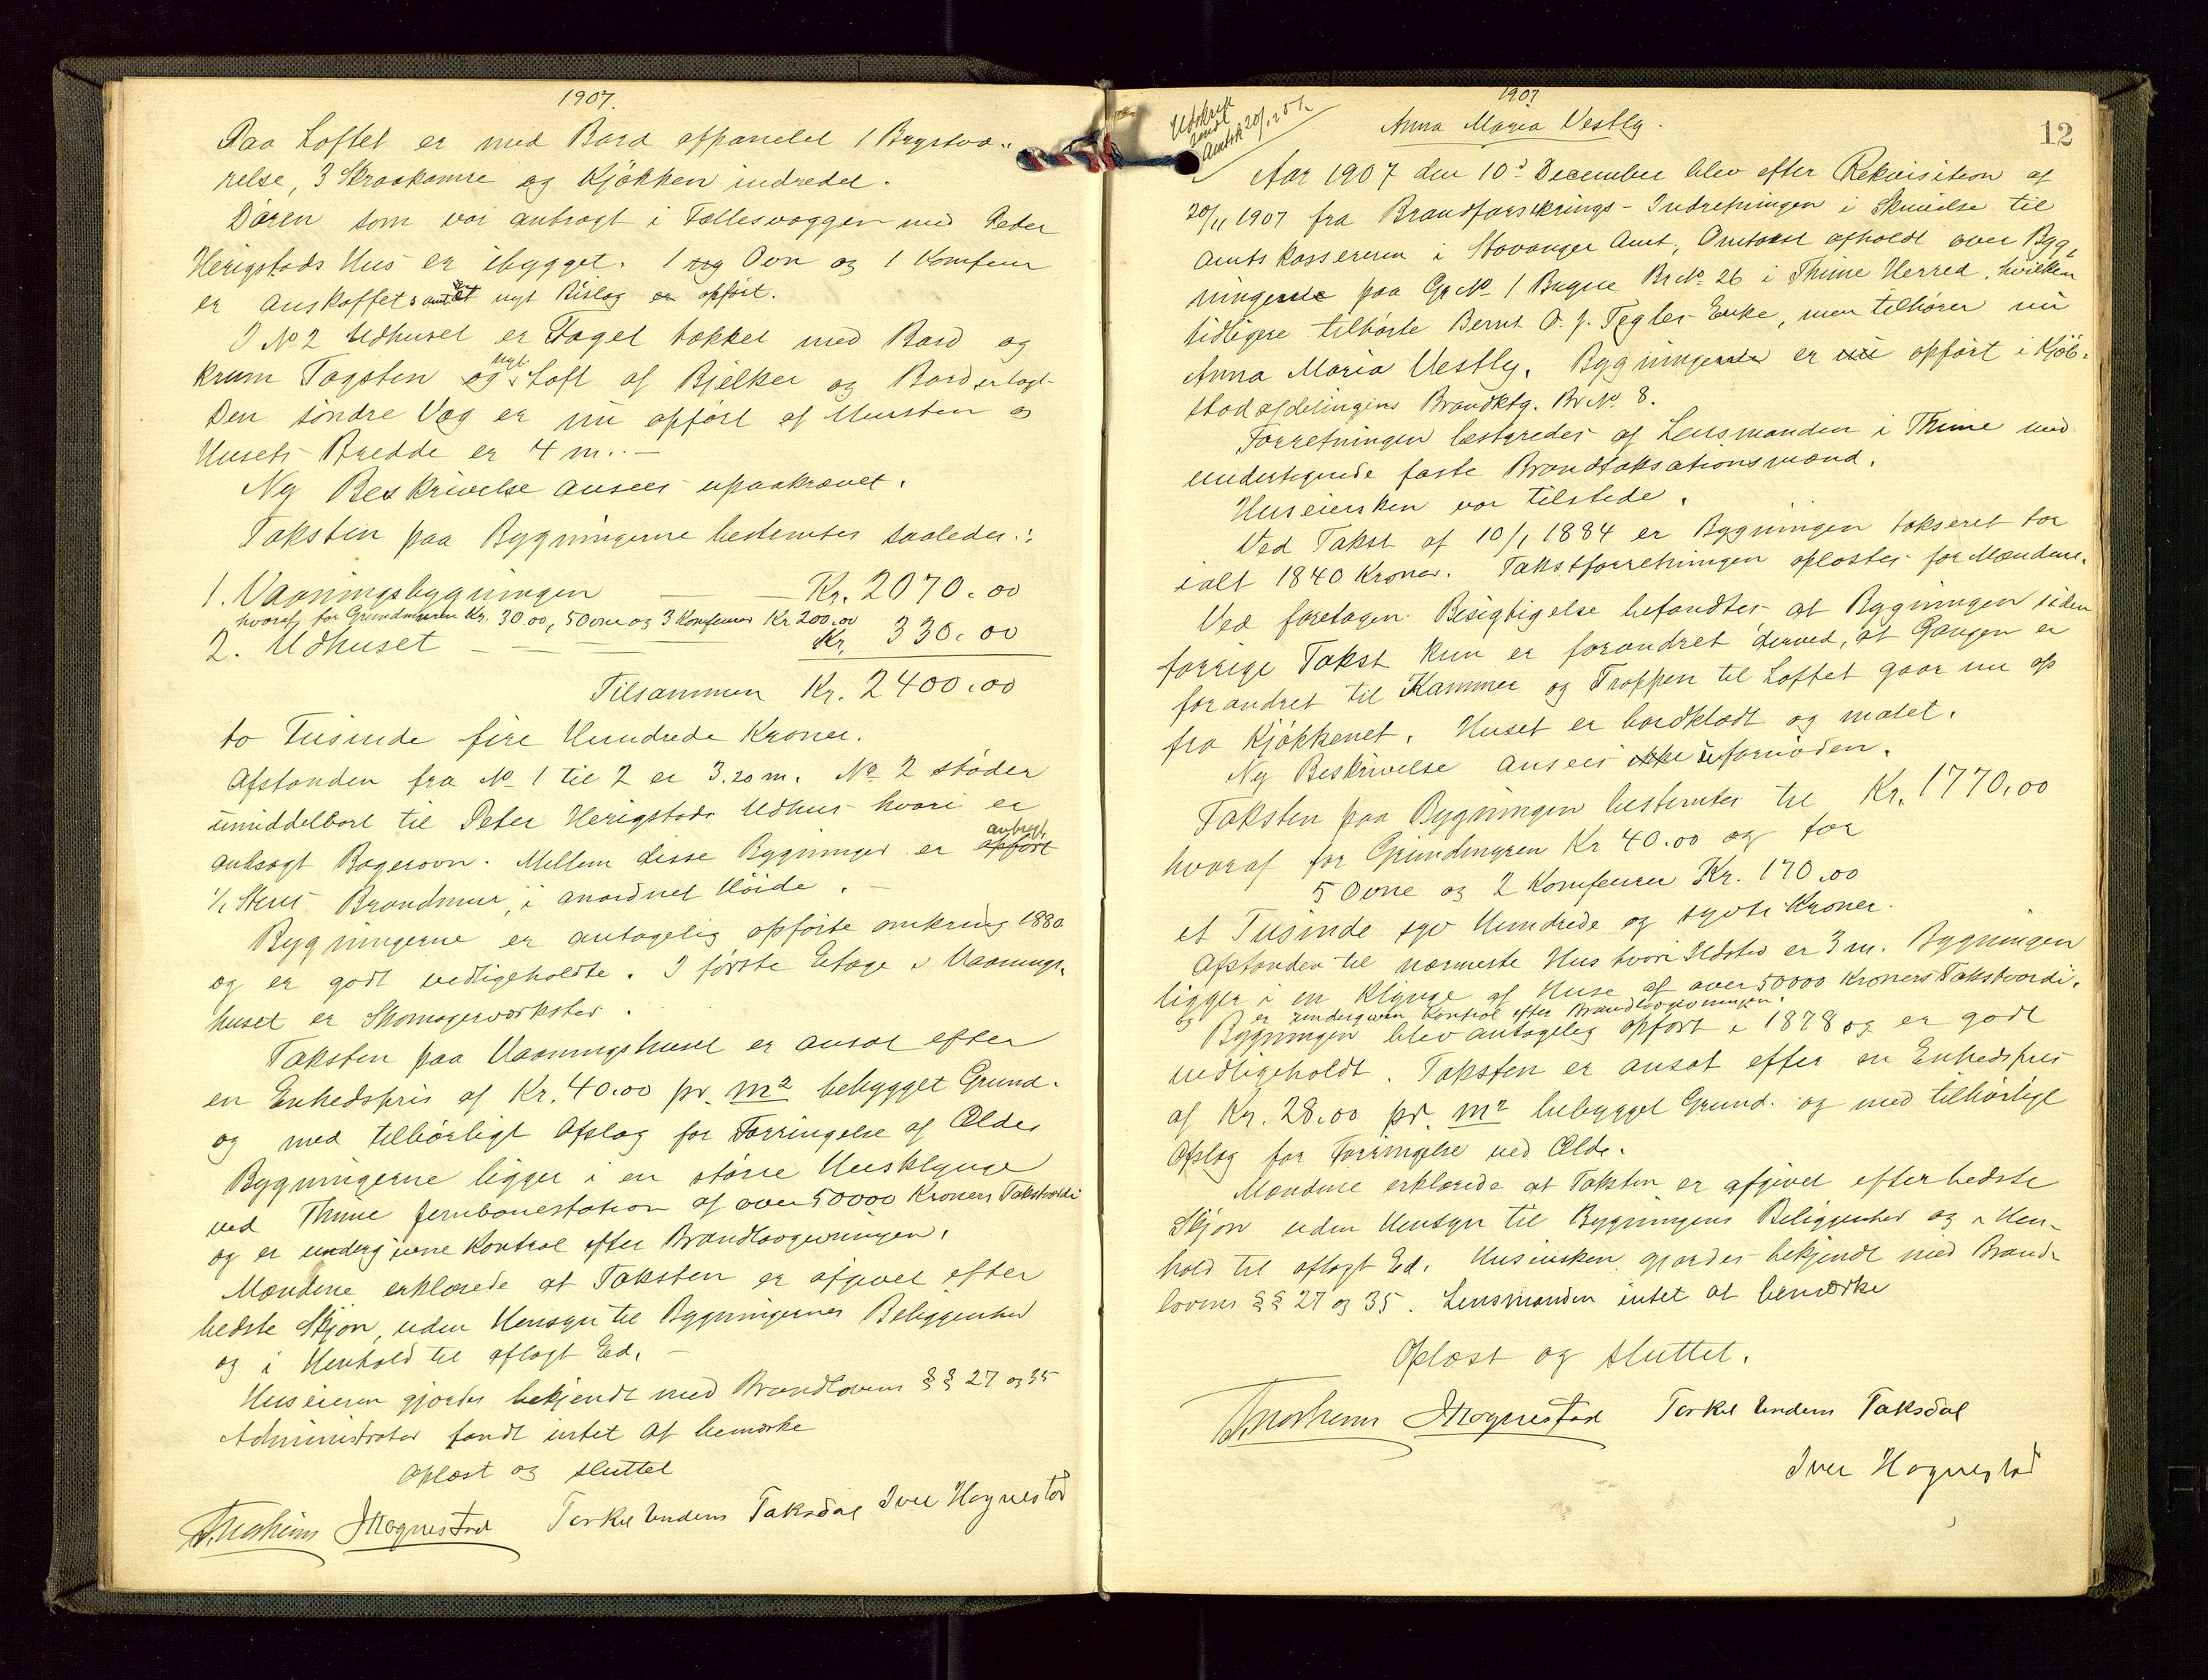 1907.
Paa Loftet er med Bord afpanelet 1 Brystvæ-
relse, 3 Skraakamre og Kjøkken indredet.
Døren som var anbragt i Fællesvæggen med Peder
Herigstads Hus er ibygget. 1 ny Ovn og 1 Komfur
er anskaffet samt et nyt Bislag er opført.
I No 2 Udhuset er Taget tækket med Bord og
krum Tagsten og nyt Loft af Bjelker og Bord erlagt.
Den søndre Væg er nu opført af Mursten og
Husets Bredde er 4 m. –
Ny Beskrivelse ansees upaakrævet.
Taksten paa Bygningerne bestemtes saaledes:
1. Vaaningsbygningen — — Kr. 2070.00
hvoraf for Grundmuren Kr. 30.00, 5 Ovne og 3 Komfurer Kr 200.00
2. Udhuset — — — Kr. 330.00
Tilsammen Kr. 2400.00
to Tusinde fire Hundrede Kroner.
Afstanden fra No 1 til 2 er 3.20 m. No 2 støder
umiddelbart til Peder Herigstads Udhus hvori er
anbragt Bagerovn. Mellem disse Bygninger er opført anbragt
1/1 Stens Brandmur, i anordnet Høide. –
Bygningerne er antagelig opførte omkring 1880
og er godt vedligeholdte. I første Etage i Vaanings-
huset er Skomagerværksted.
Taksten paa Vaaningshuset er ansat efter
en Enhedspris af Kr. 40.00 pr. m2 bebygget Grund
og med tilbørligt Afslag for Forringelse af Ælde.
Bygningerne ligger i en større Husklynge
ved Thime Jernbanestation af over 50000 Kroners Takstværdi
og er undergivne Kontrol efter Brandlovgivningen.
Mændene erklærede at Taksten er afgivet efter
bedste Skjøn, uden Hensyn til Bygningernes Beliggenhed
og i Henhold til aflagt Ed. –
Huseieren gjordes bekjendt med Brandlovens §§ 27 og 35
Administrator fandt intet at bemærke
Oplæst og sluttet
Torkel Undem Taksdal Iver Hognestad
Hognestad
1907
12
Udskrift
sendt
Amtsk 20/12 07.
Anna Maria Vestly.
Aar 1907 den 10d December blev efter Rekvisition af
20/11 1907 fra Brandforsikrings-Indretningen i Skrivelse til
Amtskassereren i Stavanger Amt, Omtakst afholdt over Byg-
ningerne paa Gr No 1 Bryne Br No 26 i Thime Herred, hvilken
tidligere tilhørte Bernt O. J. Tegles Enke, men tilhører nu
Anna Maria Vestly. Bygningerne er nu opført i Kjøb-
stadafdelingens Brandktg. Br No 8.
Forretningen bestyredes af Lensmanden i Thime med
undertegnede faste Brandtaksationsmænd.
Huseiersken var tilstede.
Ved Takst af 10/1 1884 er Bygningen takseret for
ialt 1840 Kroner. Takstforretningen oplæstes for Mændene.
Ved foretagen Besigtigelse befandtes at Bygningen siden
forrige Takst kun er forandret derved, at Gangen er
forandret til Kammer og Trappen til Loftet gaar nu op
fra Kjøkkenet. Huset er bordklædt og malet.
Ny Beskrivelse ansees ikke ufornøden.
Taksten paa Bygningen bestemtes til Kr. 1770.00
hvoraf for Grundmuren Kr 40.00 og for
5 Ovne og 2 Komfurer Kr. 170.00
et Tusinde syv Hundrede og sytti Kroner.
Afstanden til nærmeste Hus hvori Ildsted er 3 m. Bygningen
ligger i en Klynge af Huse af over 50000 Kroners Takstværdi.
og er undergiven Kontrol efter Brandlovgivningen.
Bygningen blev antagelig opført i 1878 og er godt
vedligeholdt. Taksten er ansat efter en Enhedspris
af Kr. 28.00 pr. m2 bebygget Grund og med tilbørligt
Afslag for Forringelse ved Ælde.
Mændene erklærede at Taksten er afgivet efter bedste
Skjøn uden Hensyn til Bygningens Beliggenhed og i Hen-
hold til aflagt Ed. Huseiersken gjordes bekjendt med Brand-
lovens §§ 27 og 35. Lensmanden intet at bemærke
Oplæst og sluttet.
Hognestad Torkel Undem Taksdal
Iver Hognestad